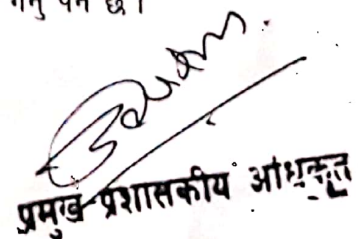 गर्नु पर्ने छ।
प्रमुख प्रशासकीय अधिकृत